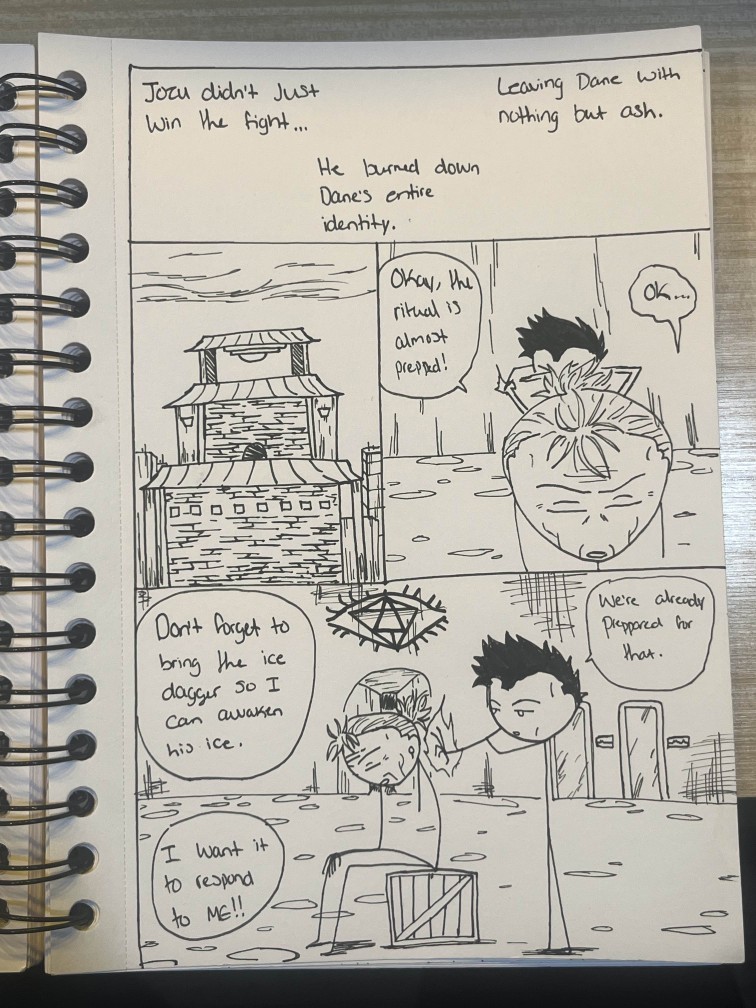 Jozu didn't Just
Win the fight...
He burned down
Dane's entire
identity.
Leaving Dane with
nothing but ash.
Okay, the
ritual is
almost
prepped!
OK...
Don't forget to
bring the ice
dagger so I
can awaken
his ice.
We're already
preppared for
that.
I want it
to respond
to ME!!